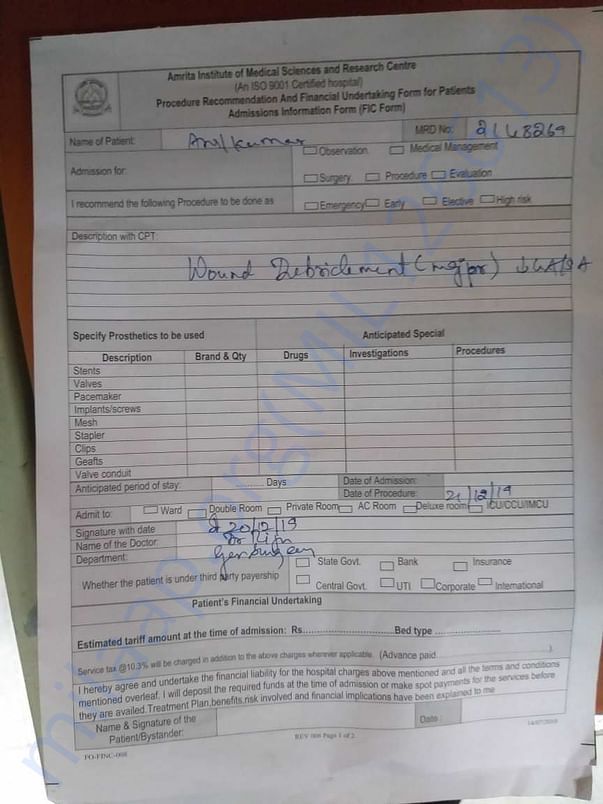 Amrita Institute of Medical Sciences and Research Centre
(An ISO 9001 Certified hospital)
Procedure Recommendation And Financial Undertaking Form for Patients
Admissions Information Form (FIC Form)
Name of Patient: Anilkumar MRD No: 2148269
Admission for: Observation. Medical Management
Surgery Procedure Evaluation
I recommend the following Procedure to be done as Emergency Early Elective High risk
Description with CPT:
Wound Debridement (major)
Specify Prosthetics to be used Anticipated Special
Description Brand & Qty Drugs Investigations Procedures
Stents
Valves
Pacemaker
Implants/screws
Mesh
Stapler
Clips
Geafts
Valve conduit
Anticipated period of stay: ......... Days Date of Admission:
Date of Procedure: 21/12/19
Admit to: Ward Double Room Private Room AC Room Deluxe room ICU/CCU/IMCU
Signature with date 20/12/19
Name of the Doctor: Dr
Department:
Whether the patient is under third party payership State Govt. Bank Insurance
Central Govt. UTI Corporate International
Patient's Financial Undertaking
Estimated tariff amount at the time of admission: Rs.............................. Bed type ......................
Service tax @10.3% will be charged in addition to the above charges wherever applicable. (Advance paid..............................).
I hereby agree and undertake the financial liability for the hospital charges above mentioned and all the terms and conditions
mentioned overleaf. I will deposit the required funds at the time of admission or make spot payments for the services before
they are availed.Treatment Plan,benefits,risk involved and financial implications have been explained to me
Name & Signature of the Date :
Patient/Bystander:
REV 006 Page 1 of 2
FO-FINC-008